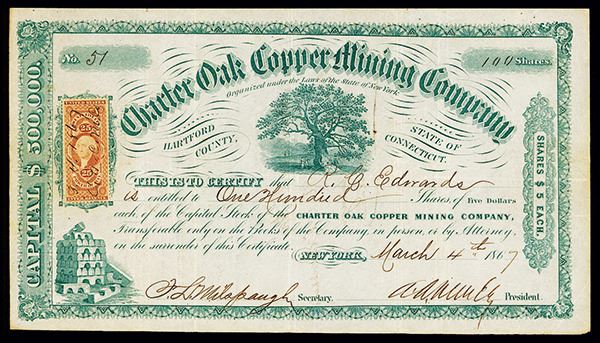 No. 51
100 Shares.
Charter Oak Copper Mining Company
Organized under the Laws of the State of New York
HARTFORD COUNTY,
STATE OF CONNECTICUT.
CAPITAL $ 500,000.
SHARES $ 5 EACH.
THIS IS TO CERTIFY that R. C. Edwards
is entitled to One Hundred Shares of Five Dollars
each, of the Capital Stock of the CHARTER OAK COPPER MINING COMPANY,
Transferable only on the Books of the Company, in person, or by Attorney,
on the surrender of this Certificate.
NEW YORK, March 4th 1867
Secretary.
President.